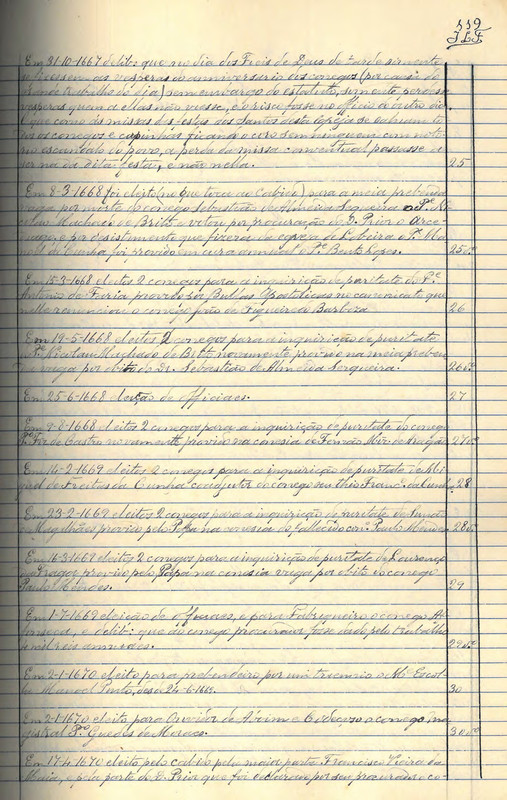 559
J.L.F.
Em 31-10-1667 delib. que no dia dos Fieis de Deus de tarde somente
se dissessem as vesperas do anniversario dos conegos (por causa do
grande trabalho do dia) sem embargo do estatuto, somente perdesse
vesperas quem a ellas não viesse, e o risco fosse no officio do outro dia
E que como ás missas das festas dos Santos desta Igreja se sahiam to-
dos os conegos e capinhas ficando o coro sem ninguem com noto-
rio escandalo do povo, a perda da missa conventual passasse a
ser na da dita festa, e não nella. 25
Em 8-3-1668 foi eleito (no que toca ao Cabido) para a meia prebenda
vaga por morte do conego Sebastião de Almeida Sequeira o Pe. Ni-
colau Machado de Britto e votou por procuração do D. Prior o Arce-
diago, e por desistimento que fizera da egreja de Lobeira o Pe. Ma-
noel da Cunha, foi provido em cura annual o Pe. Bento Lopes. 25v.
Em 15-3-1668 eleitos 2 conegos para a inquirição de puritate do Pe.
Antonio de Faria provido por Bullas Apostolicas no canonicato que
nelle renunciou o conego João de Figueirôa Barboza. 26
Em 19-5-1668 eleitos 2 conegos para a inquirição de puritate
do Pe. Nicolau Machado de Britto novamente provido na meia preben-
da vaga por obito do Dr. Sebastião de Almeida Serqueira. 26v.
Em 25-6-1668 eleição de officiaes. 27
Em 8-8-1668 eleitos 2 conegos para a inquirição de puritate do conego
de Castro novamente provido na conesia de Fernão Miz. de Aragão. 27v.
Em 14-2-1669 eleitos 2 conegos para a inquirição de puritate de Mi-
guel de Freitas da Cunha coadjutor do conego seu thio Franc.º da Cunha. 28
Em 23-2-1669 eleitos 2 conegos para a inquirição de puritate de
Magalhães provido pelo Papa na conesia do fallecido con.º Paulo 28v.
Em 16-3-1669 eleitos 2 conegos para a inquirição de puritate de Lourenço
provido pelo Papa na conesia vaga por obito do conego
Paulo 29
Em 1-7-1669 eleição de officiaes, e para Fabriqueiro o conego
Fonseca, e delib. que ao conego procurador fosse dado pelo trabalho
mil reis annuaes. 29v.
Em 2-1-1670 eleito para prebendeiro por um triennio o Me. Escol-
la Manoel Pinto, desde 24-6-1669. 30
Em 2-1-1670 eleito para Ouvidor de e o conego ma-
gistral Pe. Guedes de Moraes. 30v.
Em 17-4-1670 eleito pelo cabido pela maior parte Francisco Vieira da
Maia, e pela parte do D. Prior que foi por seu procurador o co-